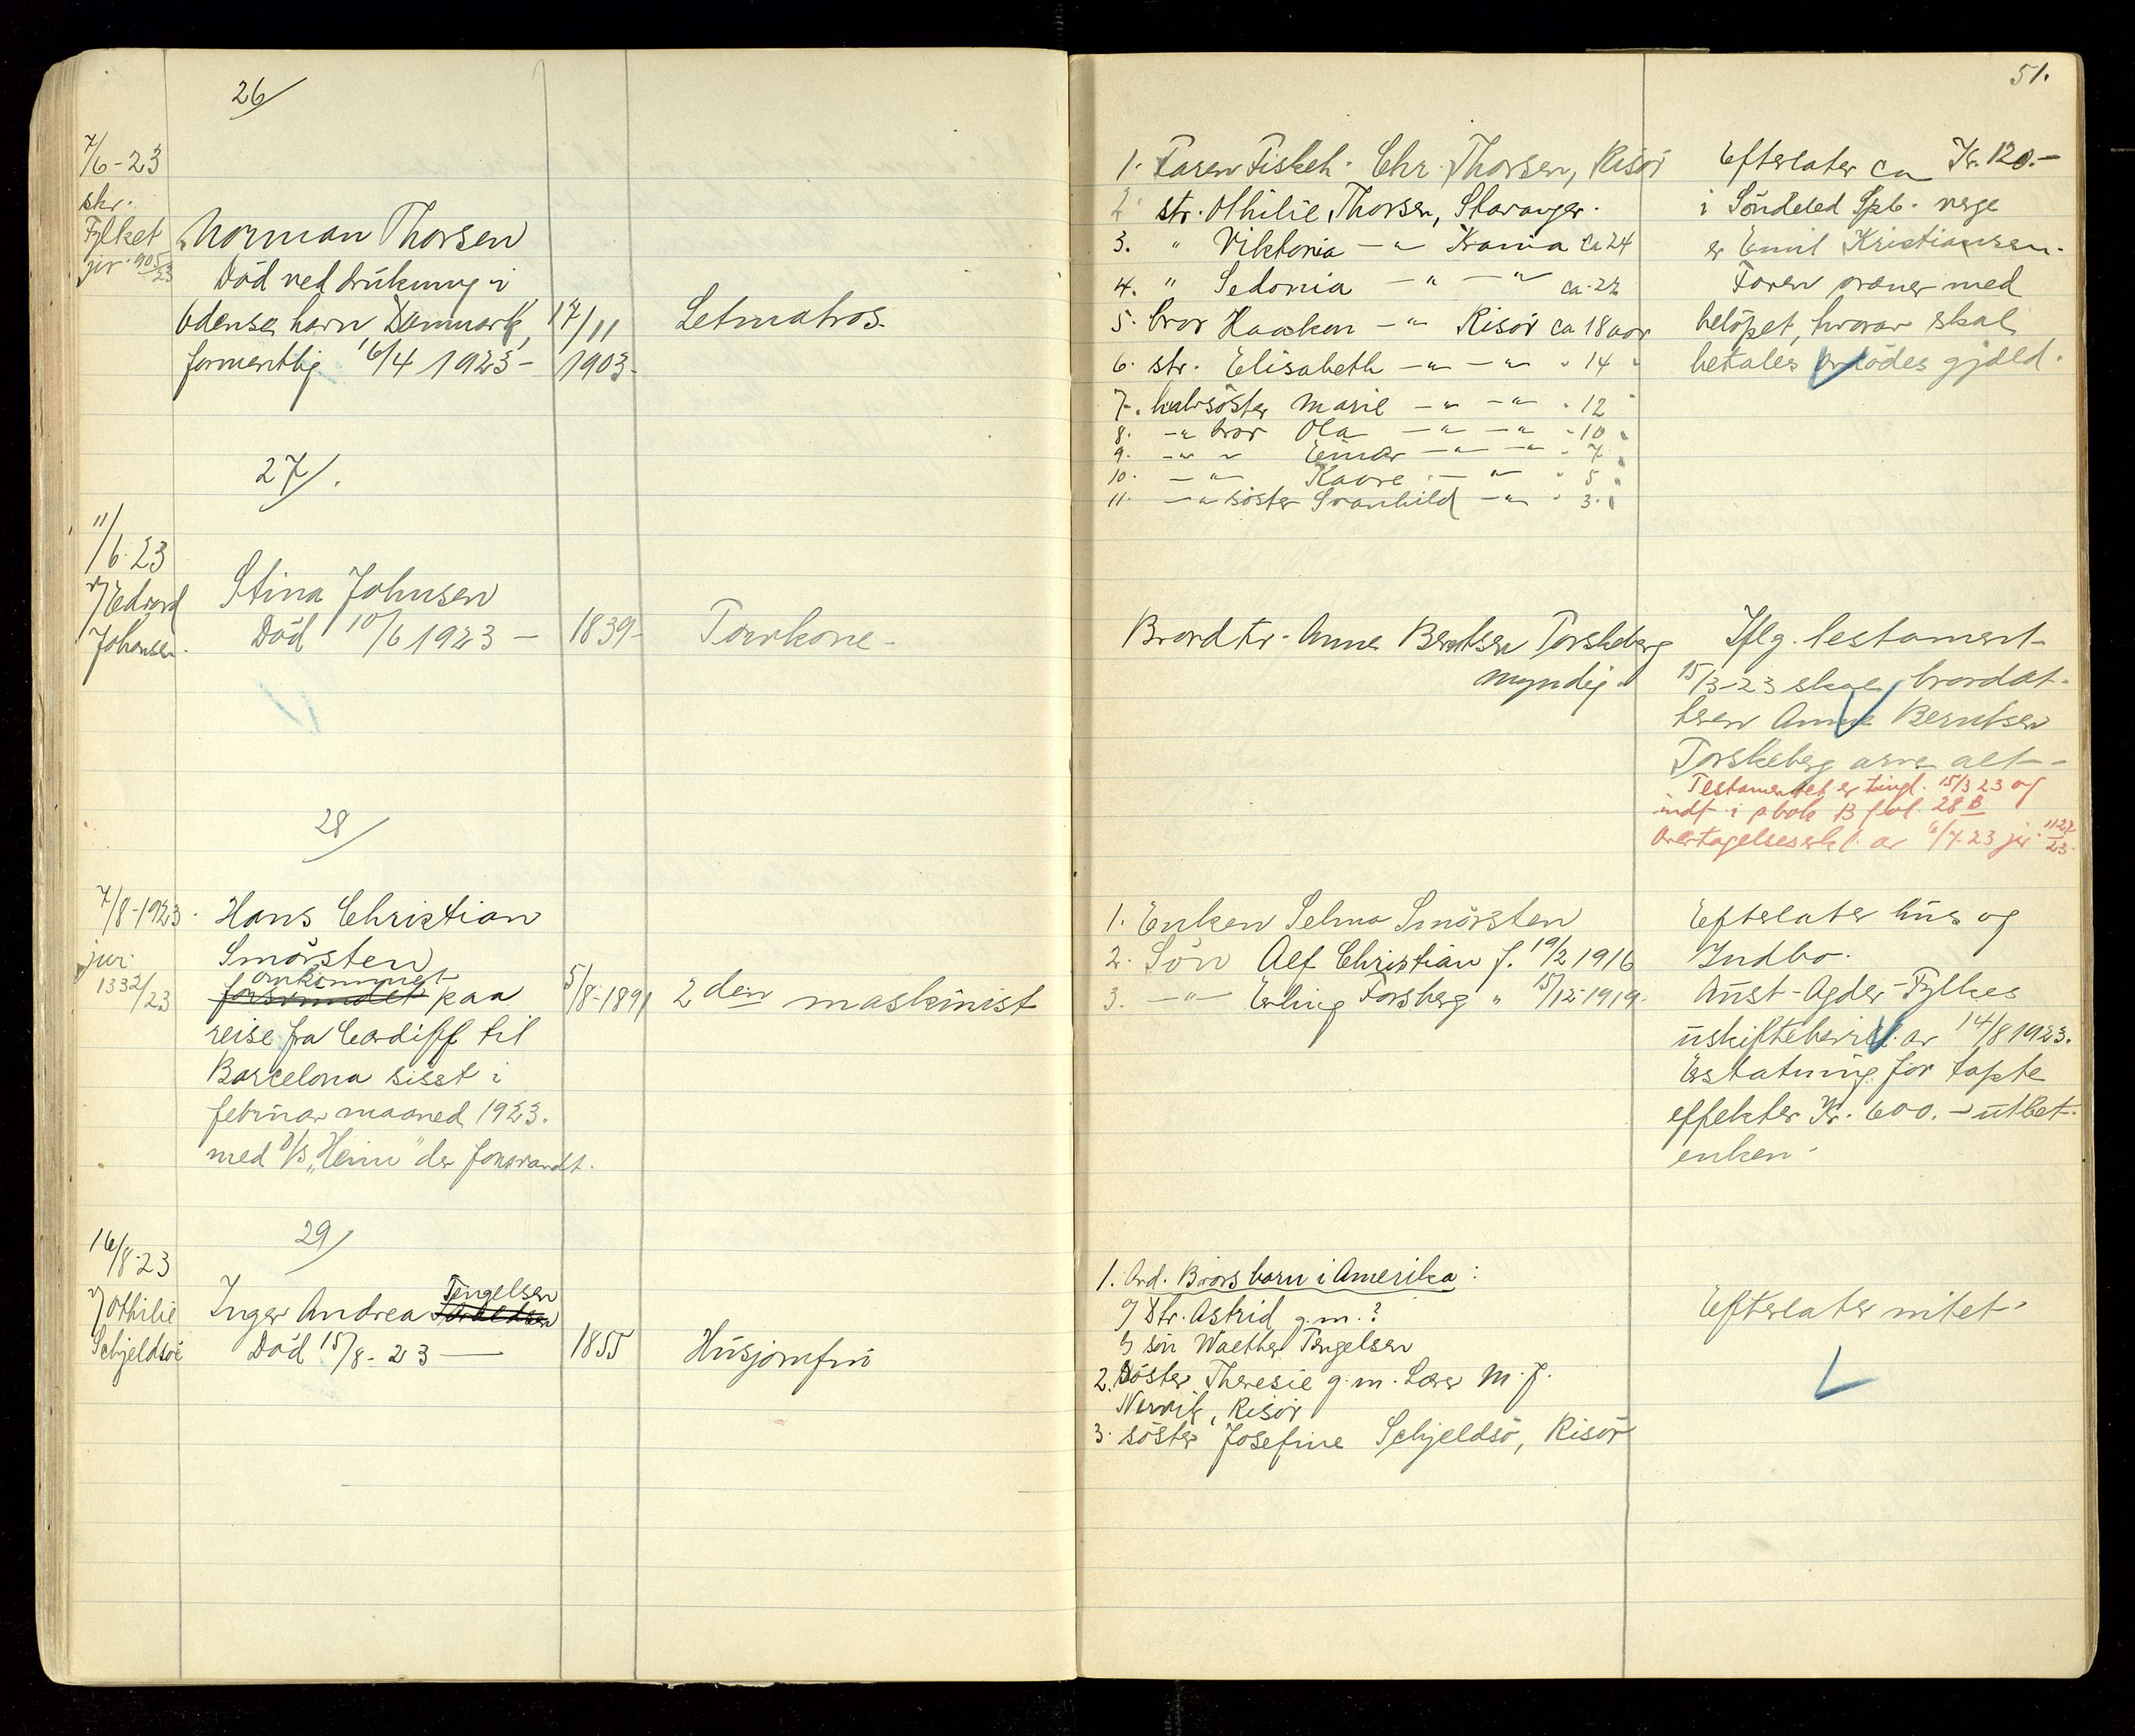 26/
7/6-23
skr.
Fylket
jnr. 905/23
Norman Thorsen
Död ved drukning i
Odense havn Danmark,
formentlig 16/4 1923-
17/11
1903-
Letmatros.
27/.
11/6-23
v/ Edvard
Johnsen.
Stina Johnsen
Död 10/6 1923 -
1839-
Tourkone-
28/
7/8-1923.
jnr.
1332/23
Hans Christian
Smörsten
omkommet
forsvundet paa
reise fra Cardiff til
Barcelona sisst i
februar maaned 1923.
med D/S „Heim" der forsvandt.
5/8-1891
2den maskinist
29/
16/8-23
v/ Othilie
Schjeldsöe
Tengelsen
Inger Andrea
Död 15/8-23 —
1855
Husjomfru
51.
1. Faren Fiskeh. Chr. Thorsen, Risör
2. str. Othilie Thorsen, Stavanger.
3. " Viktoria -"- Krania ca 24
4. " Sedonia -"- -"- ca. 22
5. bror Haakon -"- Risör ca 18 aar
6. str. Elisabeth -"- -"- " 14 "
7. halvsöster Marie -"- -"- " 12 "
8. -"- bror Ola -"- -"- " 10 "
9. -"- " Einar -"- -"- " 7 "
10. -"- Kaare -"- " 5 "
11. -"- söster Svanhild -"- " 3. "
Efterlater ca Kr. 120.-
i Söndeled Spb. verge
er Emil Kristiansen.
Faren svarer med
belöpet, hvorav skal
betales avdödes gjæld.
Brordtr. Anne Berntsen Torskeberg
myndig.
Iflg. testament
15/3-23 skal brordat-
teren Anne Berntsen
Torskeberg arve alt-
Testamentet er tingl. 15/3 23 og
indf i pbok B fol. 28 B
Overtagelseserkl. av 6/7-23 jnr 1127/23.
1. Enken Selma Smörsten
2. Sön Alf Christian f. 19/2 1916
3. -"- Erling Forsberg " 15/12-1919-
Efterlater hus og
Indbo.
Aust-Agder-Fylkes
uskiftebevill. av 14/8 1923.
Erstatning for tapte
effekter Kr. 600.- utbet.
enken.
1. Avd. Brors barn i Amerika:
a/ Dtr. Astrid g.m.?
b/ sön Walther Tengelsen
2. Söster Theresie g.m. Lærer M. J.
Nervik, Risör
3. söster Josefine Schjeldsö, Risör
Efterlater intet.